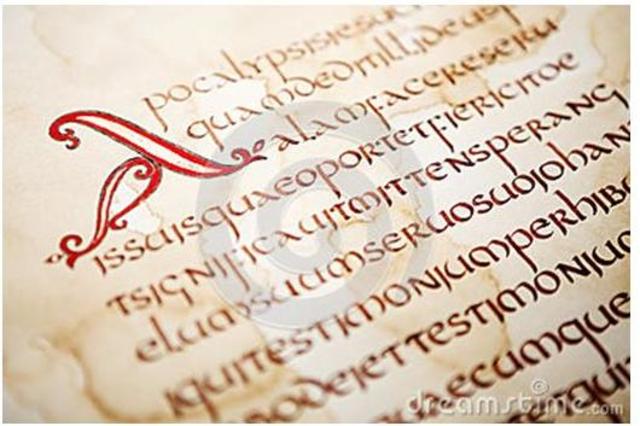 Apocalypsisiesu
quamdeditillideus
alamfacereseru
issuisquaeoportetfiericitoe
tsignificauitmittensperang
elumsuumseruosuojohan
iquitestimonjumperhib
bodejettestimonju
aecumque
dreamstime.com